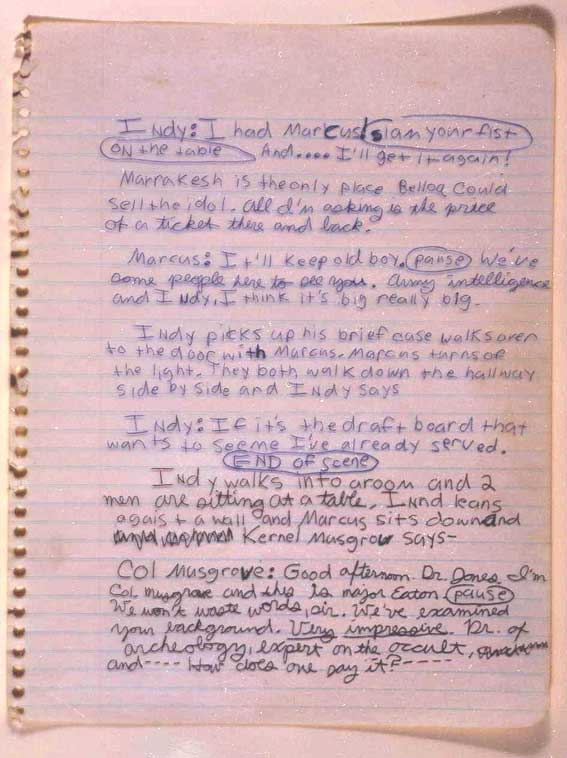 INdy: I had Marcus! slam your fist
ON the table And.... I'll get it again!
Marrakesh is the only place Belloq could
sell the idol. all I'm asking is the price
of a ticket there and back.
Marcus: It'll keep old boy. pause We've
some people here to see you. Army intelligence
and INdy, I think it's big really big.
INdy picks up his brief case walks over
to the door with Marcus. Marcus turns of
the light. They both walk down the hallway
side by side and INdy says
INdy: If it's the draft board that
wants to seeme I've already served.
END of scene
INdy walks into a room and 2
men are sitting at a table, INnd leans
agaist a wall and Marcus sits down and
Kernel Musgrov says-
Col Musgrove: Good afternoon Dr. Jones I'm
Col musgrove and this is major Eaton pause
We won't waste words, sir. We've examined
your background. Very impressive. Dr. of
archeology, expert on the occult,
and---- How does one say it?-----